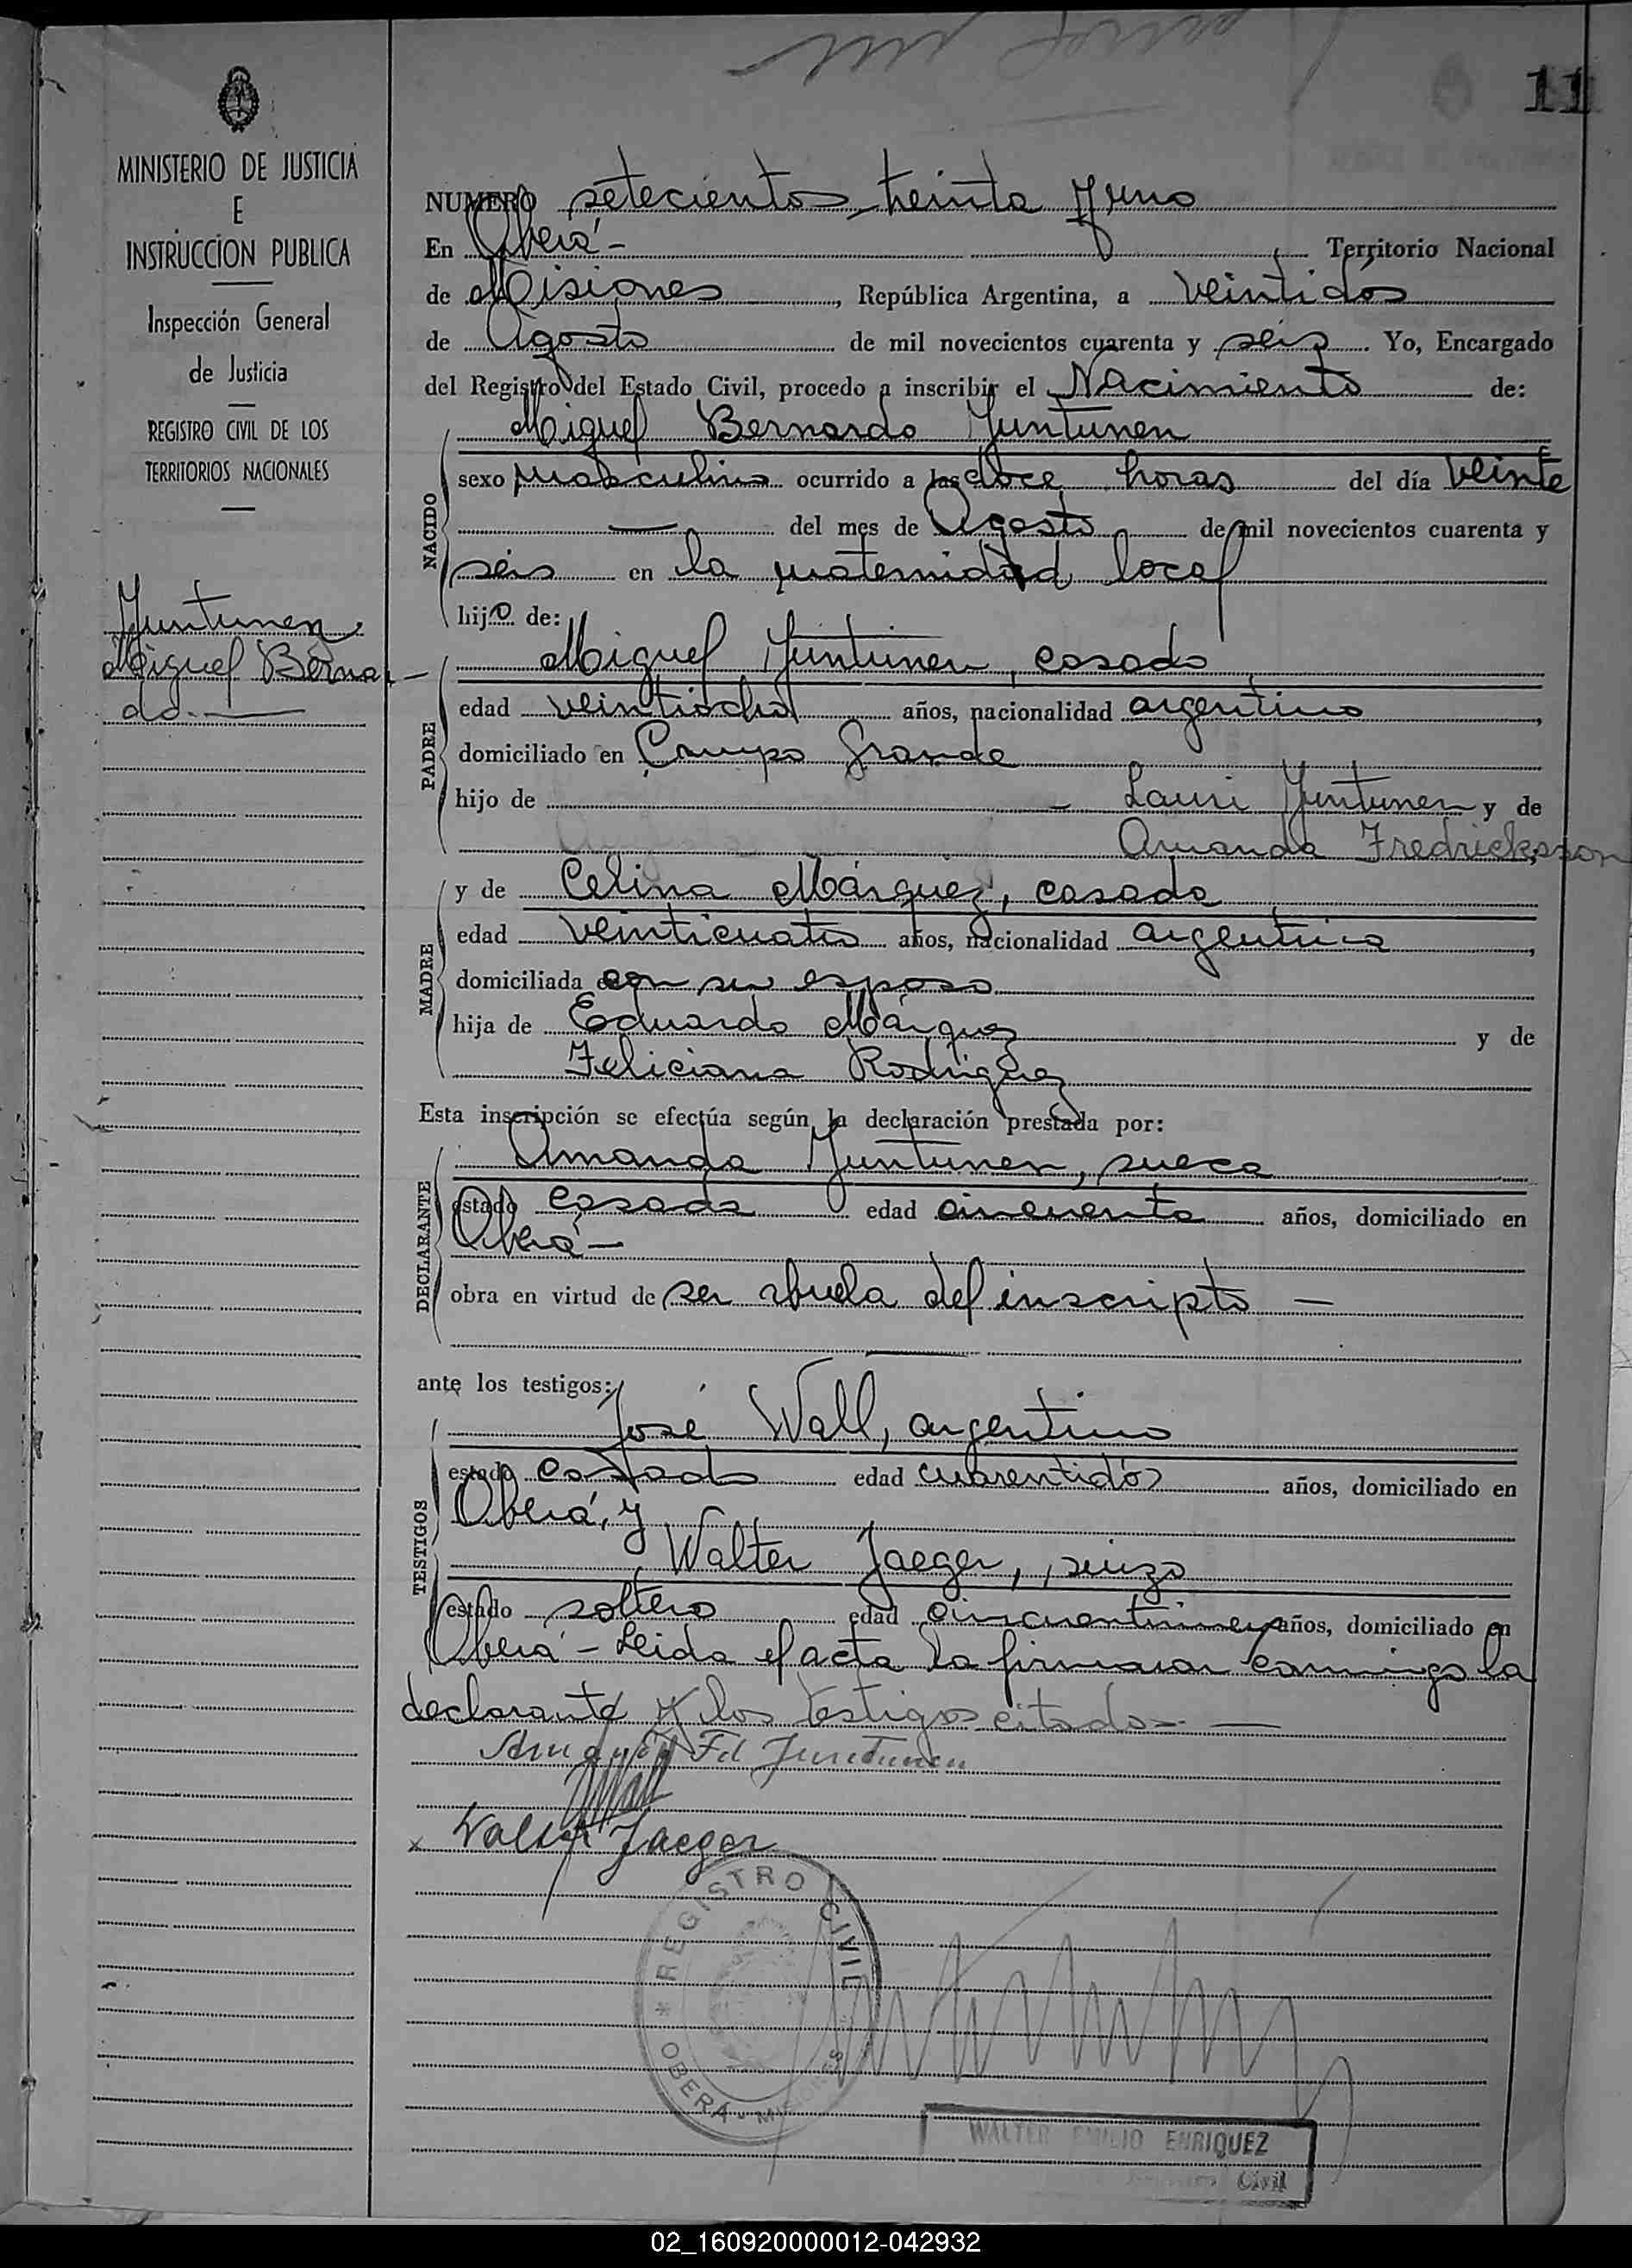 11
MINISTERIO DE JUSTICIA
E
INSTRUCCION PUBLICA
Inspección General
de Justicia
REGISTRO CIVIL DE LOS
TERRITORIOS NACIONALES
Juntunen
Miguel Bernar-
do.
NUMERO setecientos treinta y uno
En Oberá - Territorio Nacional
de Misiones, República Argentina, a veintidos
de Agosto de mil novecientos cuarenta y seis. Yo, Encargado
del Registro del Estado Civil, procedo a inscribir el Nacimiento de:
NACIDO
Miguel Bernardo Juntunen
sexo masculino ocurrido a las doce horas del día veinte
— del mes de Agosto de mil novecientos cuarenta y
seis en la maternidad local
hijo de:
PADRE
Miguel Juntunen, casado
edad veintiocho años, nacionalidad argentino,
domiciliado en Campo Grande
hijo de - Lauri Juntunen y de
Amanda Fredricksson
MADRE
y de Celina Márquez, casada
edad veinticuatro años, nacionalidad argentina,
domiciliada con su esposo
hija de Eduardo Márquez y de
Feliciana Rodríguez
Esta inscripción se efectúa según la declaración prestada por:
DECLARANTE
Amanda Juntunen, sueca
estado casada edad cincuenta años, domiciliado en
Oberá -
obra en virtud de ser abuela del inscripto —
ante los testigos:
TESTIGOS
José Wall, argentino
estado casado edad cuarentidós años, domiciliado en
Oberá, y
Walter Jaeger, suizo
estado soltero edad años, domiciliado en
Oberá - Leida el acta la firmaron conmigo la
declarante y los testigos citados. —
Amanda Fd Juntunen
JWall
x Walter Jaeger
REGISTRO CIVIL
* OBERA - MISIONES
WALTER EMILIO ENRIQUEZ
Civil
02_160920000012-042932